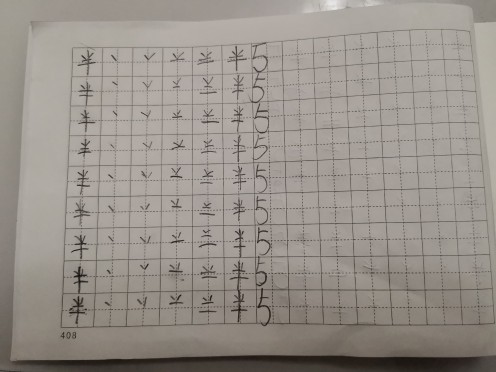 半 丶 丷 䒑 半 5
半 丶 丷 䒑 半 5
半 丶 丷 䒑 半 5
半 丶 丷 䒑 半 5
半 丶 丷 䒑 半 5
半 丶 丷 䒑 半 5
半 丶 丷 䒑 半 5
半 丶 丷 䒑 半 5
半 丶 丷 䒑 半 5
408